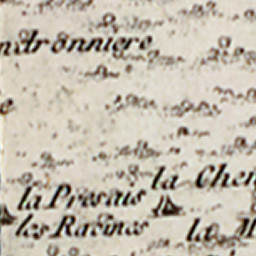 ndronniere
e
la Chen
la Presais
les Racines
la M